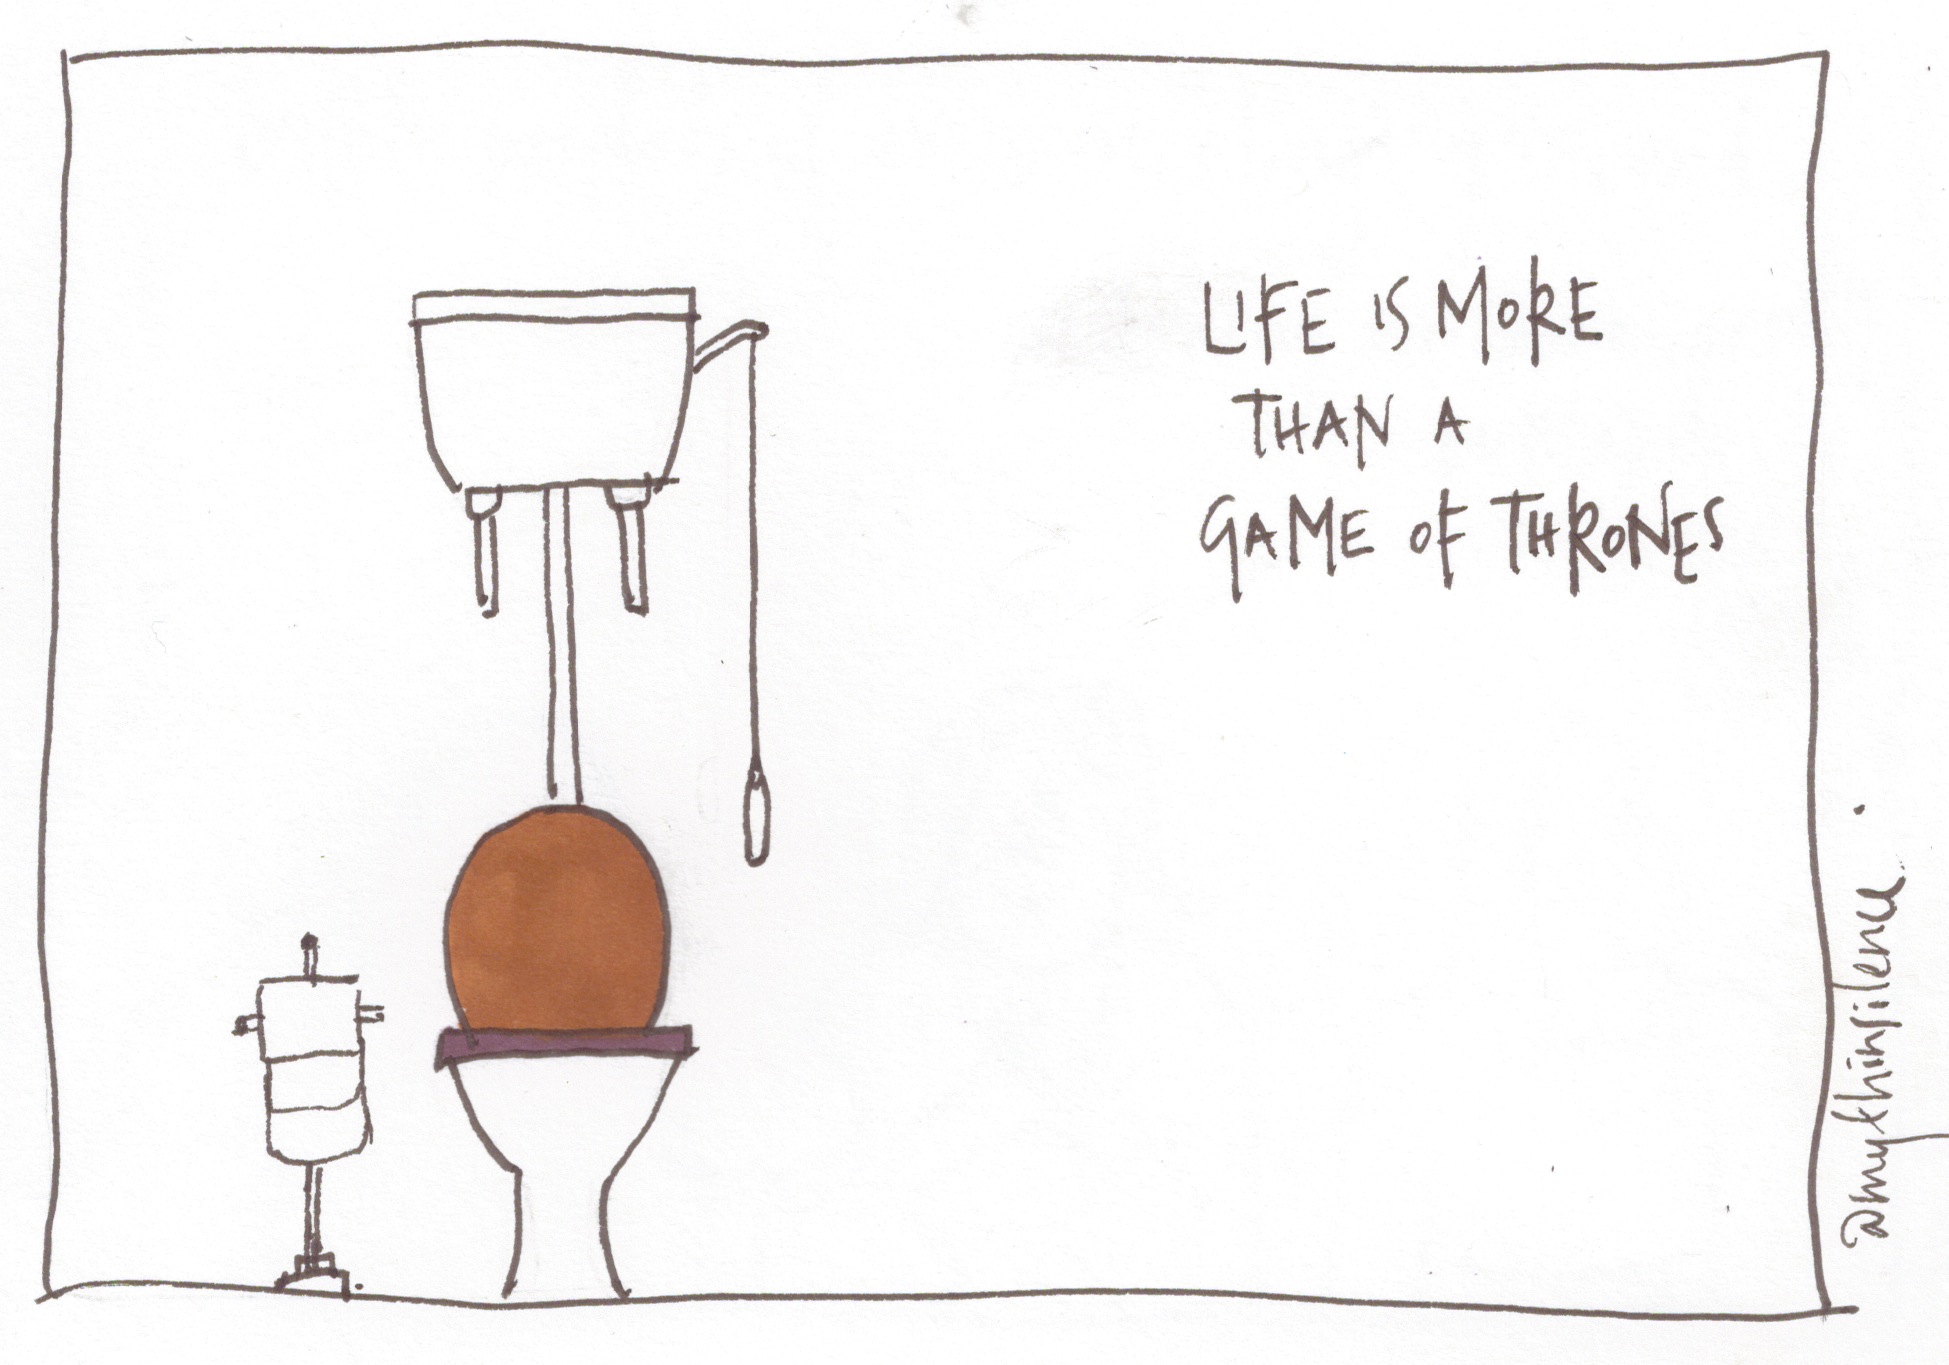 LIFE IS MORE
THAN A
GAME OF THRONES
@mykhinsilence